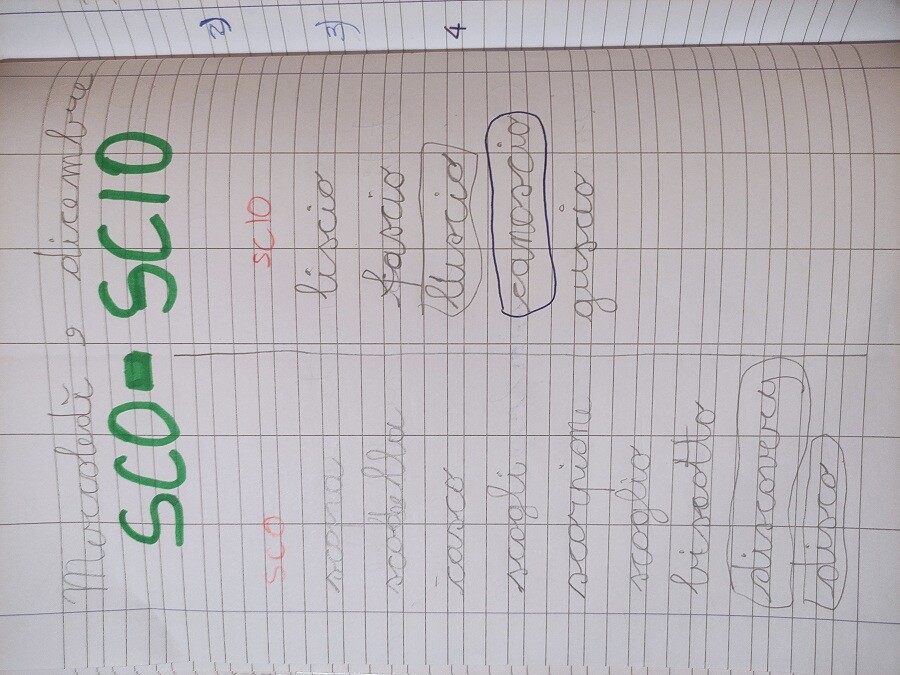 Mercoledì, 9 dicembre
SCO - SCIO
SCO
scopa
scodella
casco
scogli
scorpione
scoglio
biscotto
discovery
disco
SCIO
liscio
fascio
l'uscio
canoscio
guscio
2)
3)
4